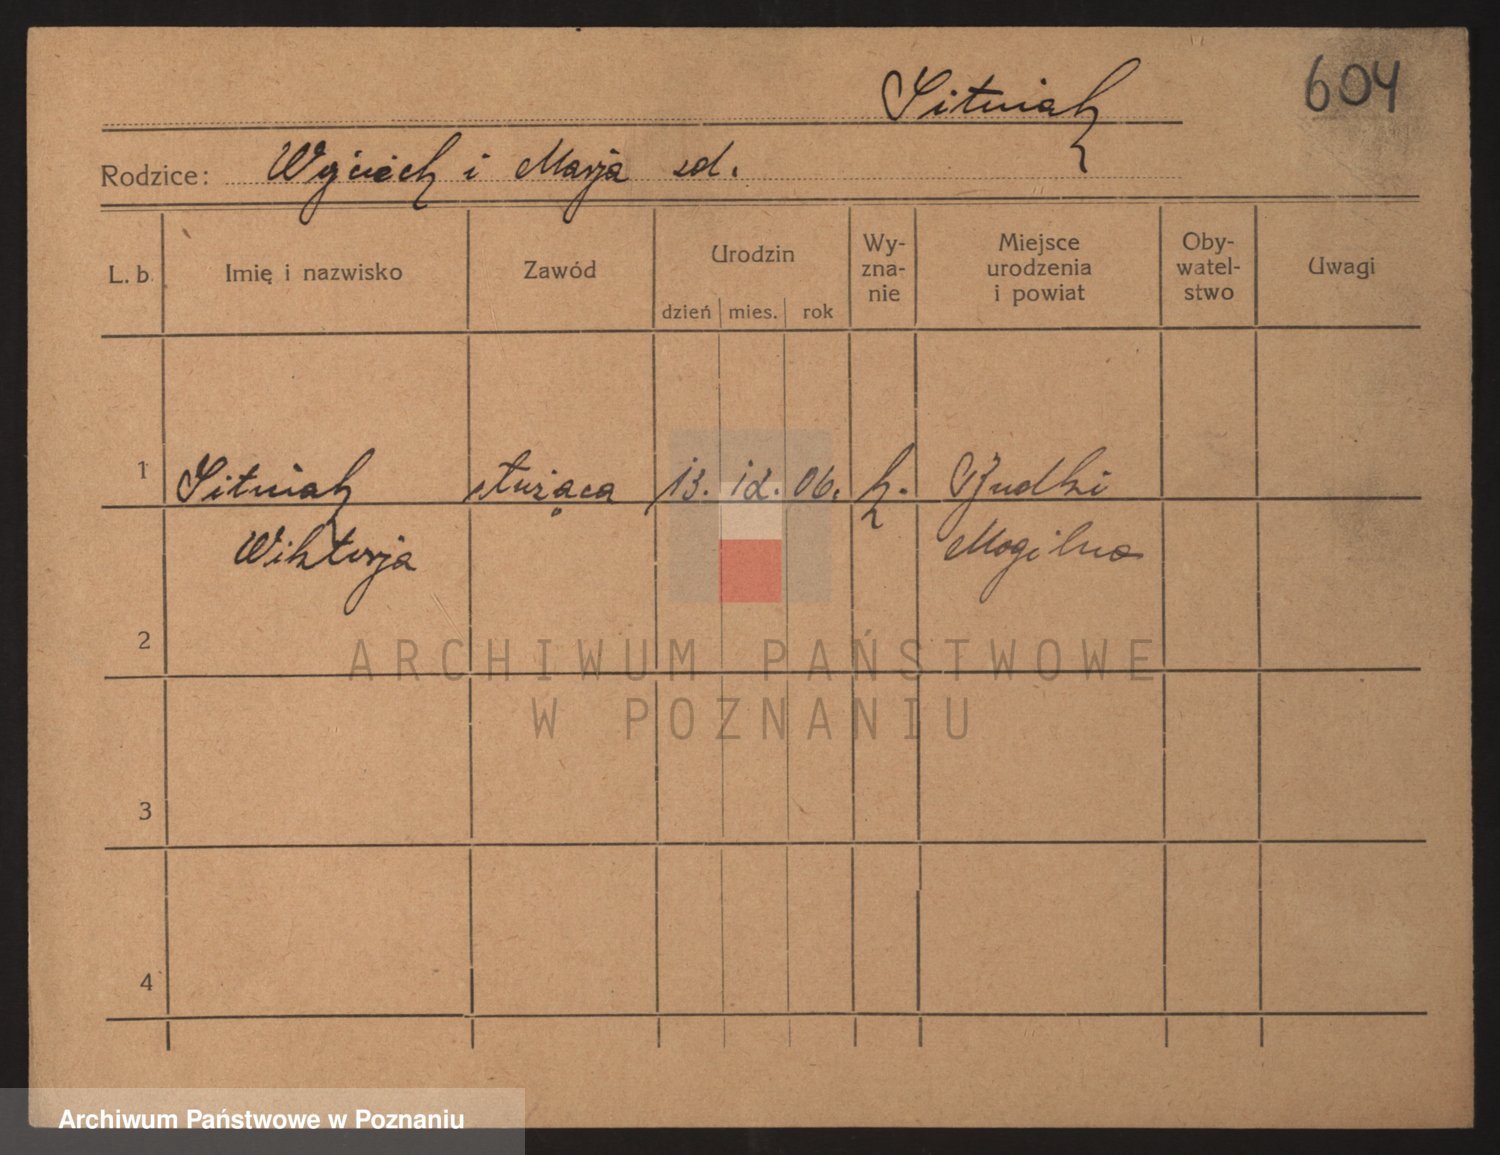 Sitniak
604
Rodzice: Wojciech i Marja zd.
L. b.
Imię i nazwisko
Zawód
Urodzin
dzień mies. rok
Wy-
zna-
nie
Miejsce
urodzenia
i powiat
Oby-
watel-
stwo
Uwagi
1 Sitniak służąca 13. 12. 06. k. Budki
Wiktorja Mogilno
2
ARCHIWUM PAŃSTWOWE
W POZNANIU
3
4
Archiwum Państwowe w Poznaniu